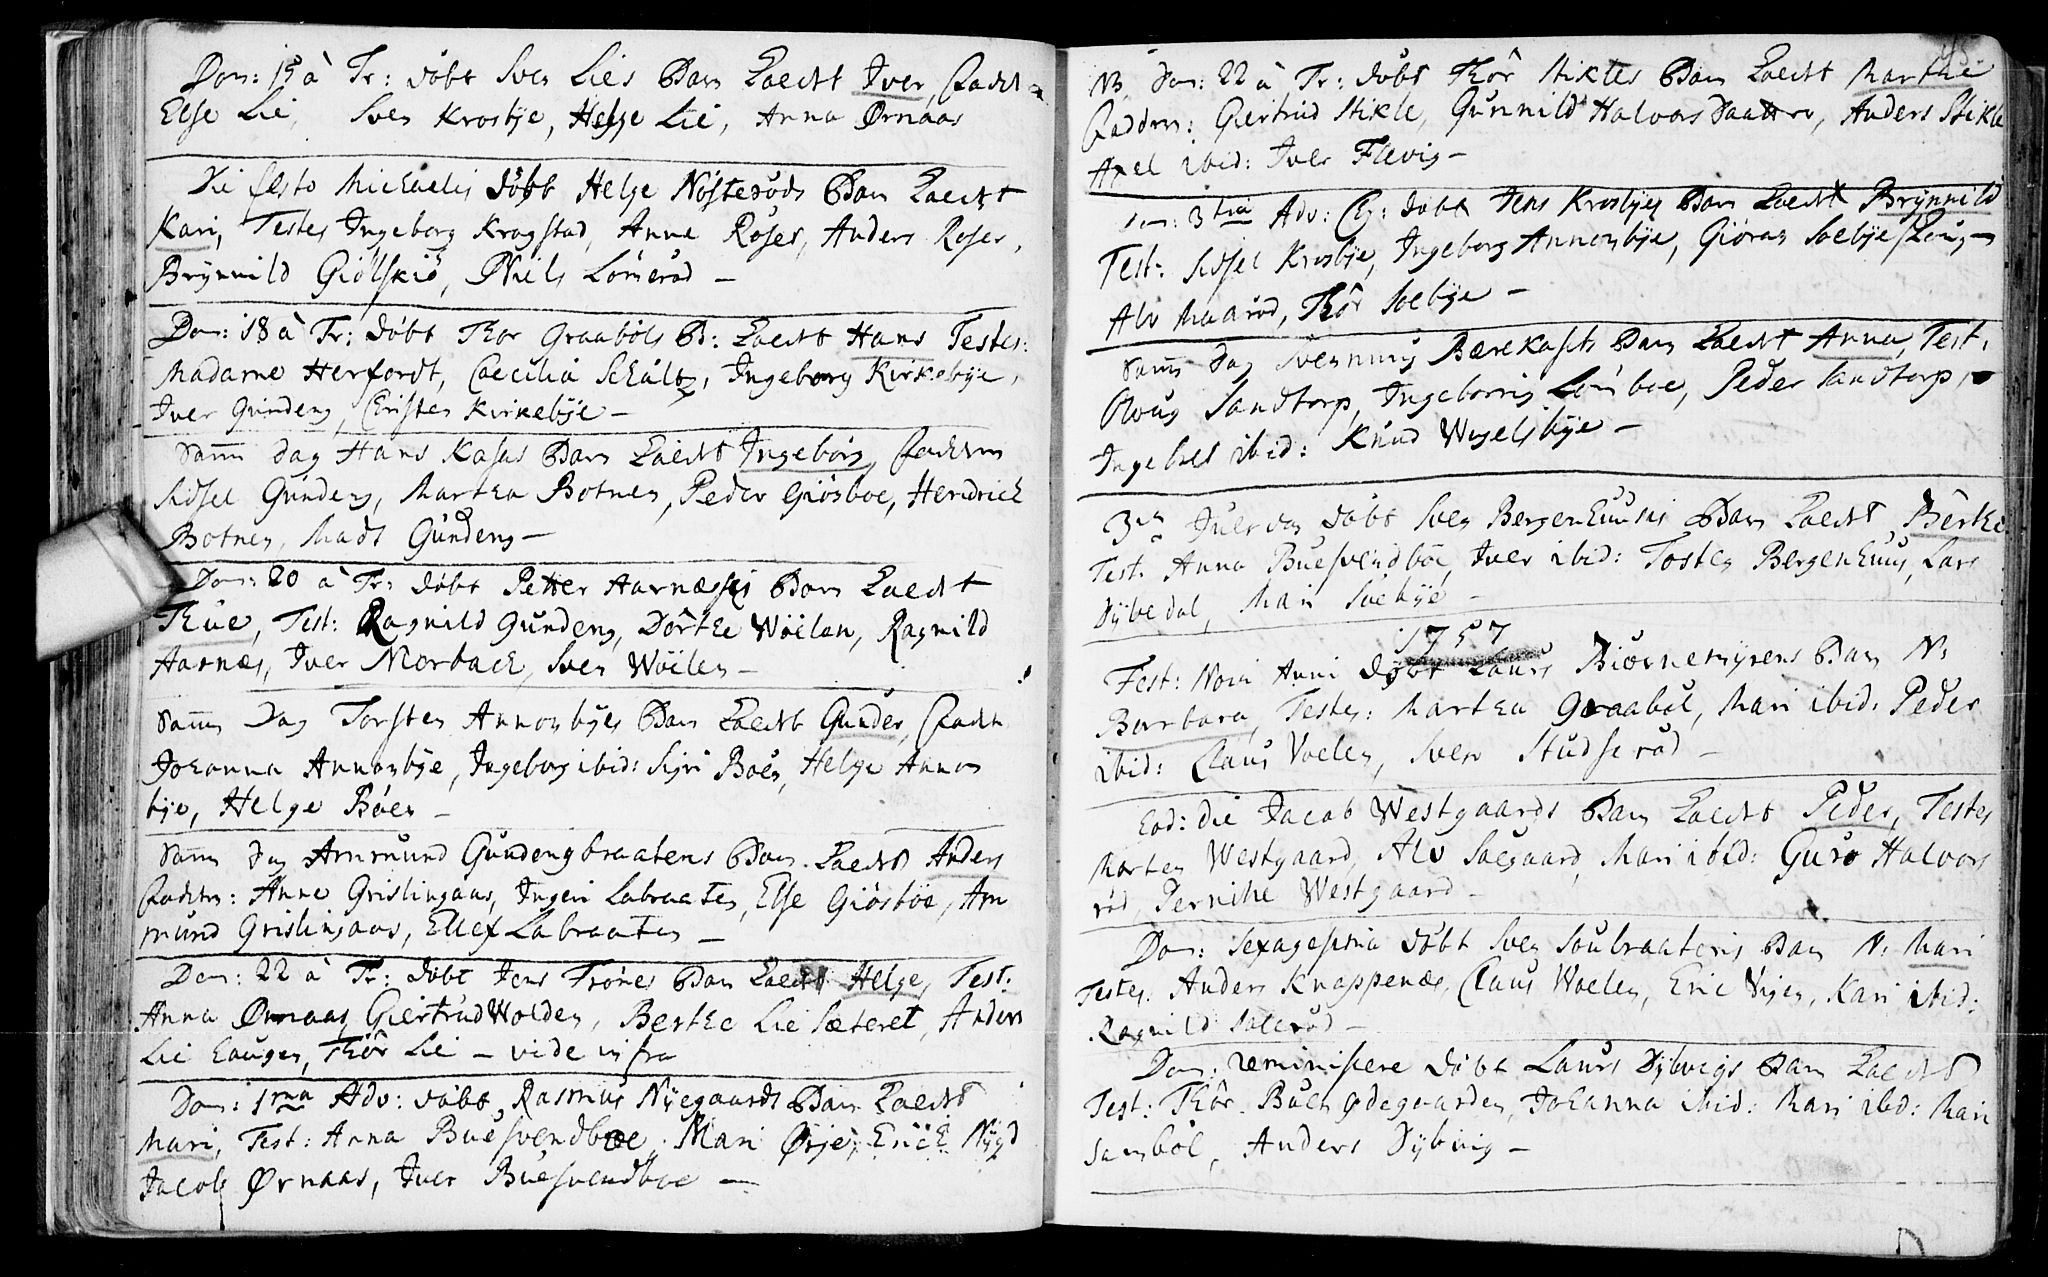 Dom: 15 à Tr: døbt Sven Lies Barn kaldt Iver, Fadd
Else Lie, Sven Krosbÿe, Helge Lie, Anna Ørnaas
Die festo Michaelis døbt Helge Nøsterøds Barn kaldt
Kari, Testes Ingeborg Kragstad, Anne Roser, Anders Roser,
Brÿnnild Giølskiø, Niels Lømerød —
Dom: 18 à Tr: døbt Thor Graabøls B: kaldt Hans Testes:
Madame Herfordt, Cæcilia Schultz, Ingeborg Kirkebÿe,
Iver Gundeng, Christen Kirkebÿe —
Samme dag Hans Kasas Barn kaldt Ingeborg, Faddere
Sidsel Gundeng, Martha Botner, Peder Giøsboe, Hendrich
Botner, Mads Gundeng —
Dom: 20 à Tr: døbt Petter Aarnæssis Barn kaldt
Thue, Test: Ragnild Gundeng, Dorthe Wøelen, Ragnild
Aarnæs, Iver Morback, Sven Wøilen —
Samme Dag Torsten Annonbÿes Barn kaldt Gunder, Faddr
Johanna Annonbÿe, Ingeborg ibid: Siri Boën, Helge Annon
bÿe, Helge Boën —
Samme dag Ammund Gundengbraatens Barn kaldt Anders
Faddere: Anne Grislingaas, Ingeri Labraaten, Else Giøsbøe, Am
mund Grislingaas, Ellef Labraaten —
Dom: 22 à Tr: døbt Jens Trones Barn kaldt Helge, Test:
Anna Ørnaas, Giertrud Wolden, Berthe Lie Sæteret, Anders
Lie haugen, Thor Lie — vide infra
Dom: 1ma Adv: døbt Rasmus Nÿegaards Barn kaldt
Mari, Test: Anna Buesvendboe, Mari Ørje, Erich Nÿgd
Jacob Ørnaas, Iver Buesvendboe —
NB. Dom: 22 à Tr: døbt Thor Stikles Barn kaldt Marthe
Faddere: Giertrud Stikle, Gunnild Halvorsdaatter, Anders Stikle
Axel ibid: Iver Flevig —
Dom: 3tia Adv: døbt Jens Krosbÿes Barn kaldt Brÿnnild
Test: Sidsel Krosbÿe, Ingeborg Annonbÿe, Gioran Soebÿe
Alv Maarud, Thor Soebÿe —
Samme Dag Svennung Bærekasets Barn kaldt Anna, Test:
Oloug Sandtorp, Ingeborrig Lomboe, Peder Sandtorp,
Ingebret ibid: Knud Wegelsbÿe —
3die Juledag døbt Sven Bergenhuusis Barn kaldt Berthe
Test: Anna Buesvendboe, Iver ibid: Tosten Bergenhuus, Lars
Dÿbedal, Mari Soebÿe —
1757
Fest: Novi Anni døbt Laurs Biørnemÿrens Barn N:
Barbara, Testes: Martha Graabøl, Mari ibid: Peder
ibid: Claus Voelen, Sven Studserød —
Eod: die Jacob Westgaards Barn kaldt Peder, Testes
Morten Westgaard, Alv Saegaard, Mari ibid: Guro Halvors
rød, Pernihe Westgaard —
Dom: Sexagesima døbt Sven Soulraatens Barn N: Mari
Testes: Anders Knappenæs, Claus Woelen, Eric Vigen, Kari ibid:
Ragnild Solerød —
Dom: reminiscere døbt Laurs Dÿbvigs Barn kaldt
Test: Thor Buens Ødegaarden, Johanna ibid: Mari ibid: Mari
Sambøl, Anders Dÿbvig —